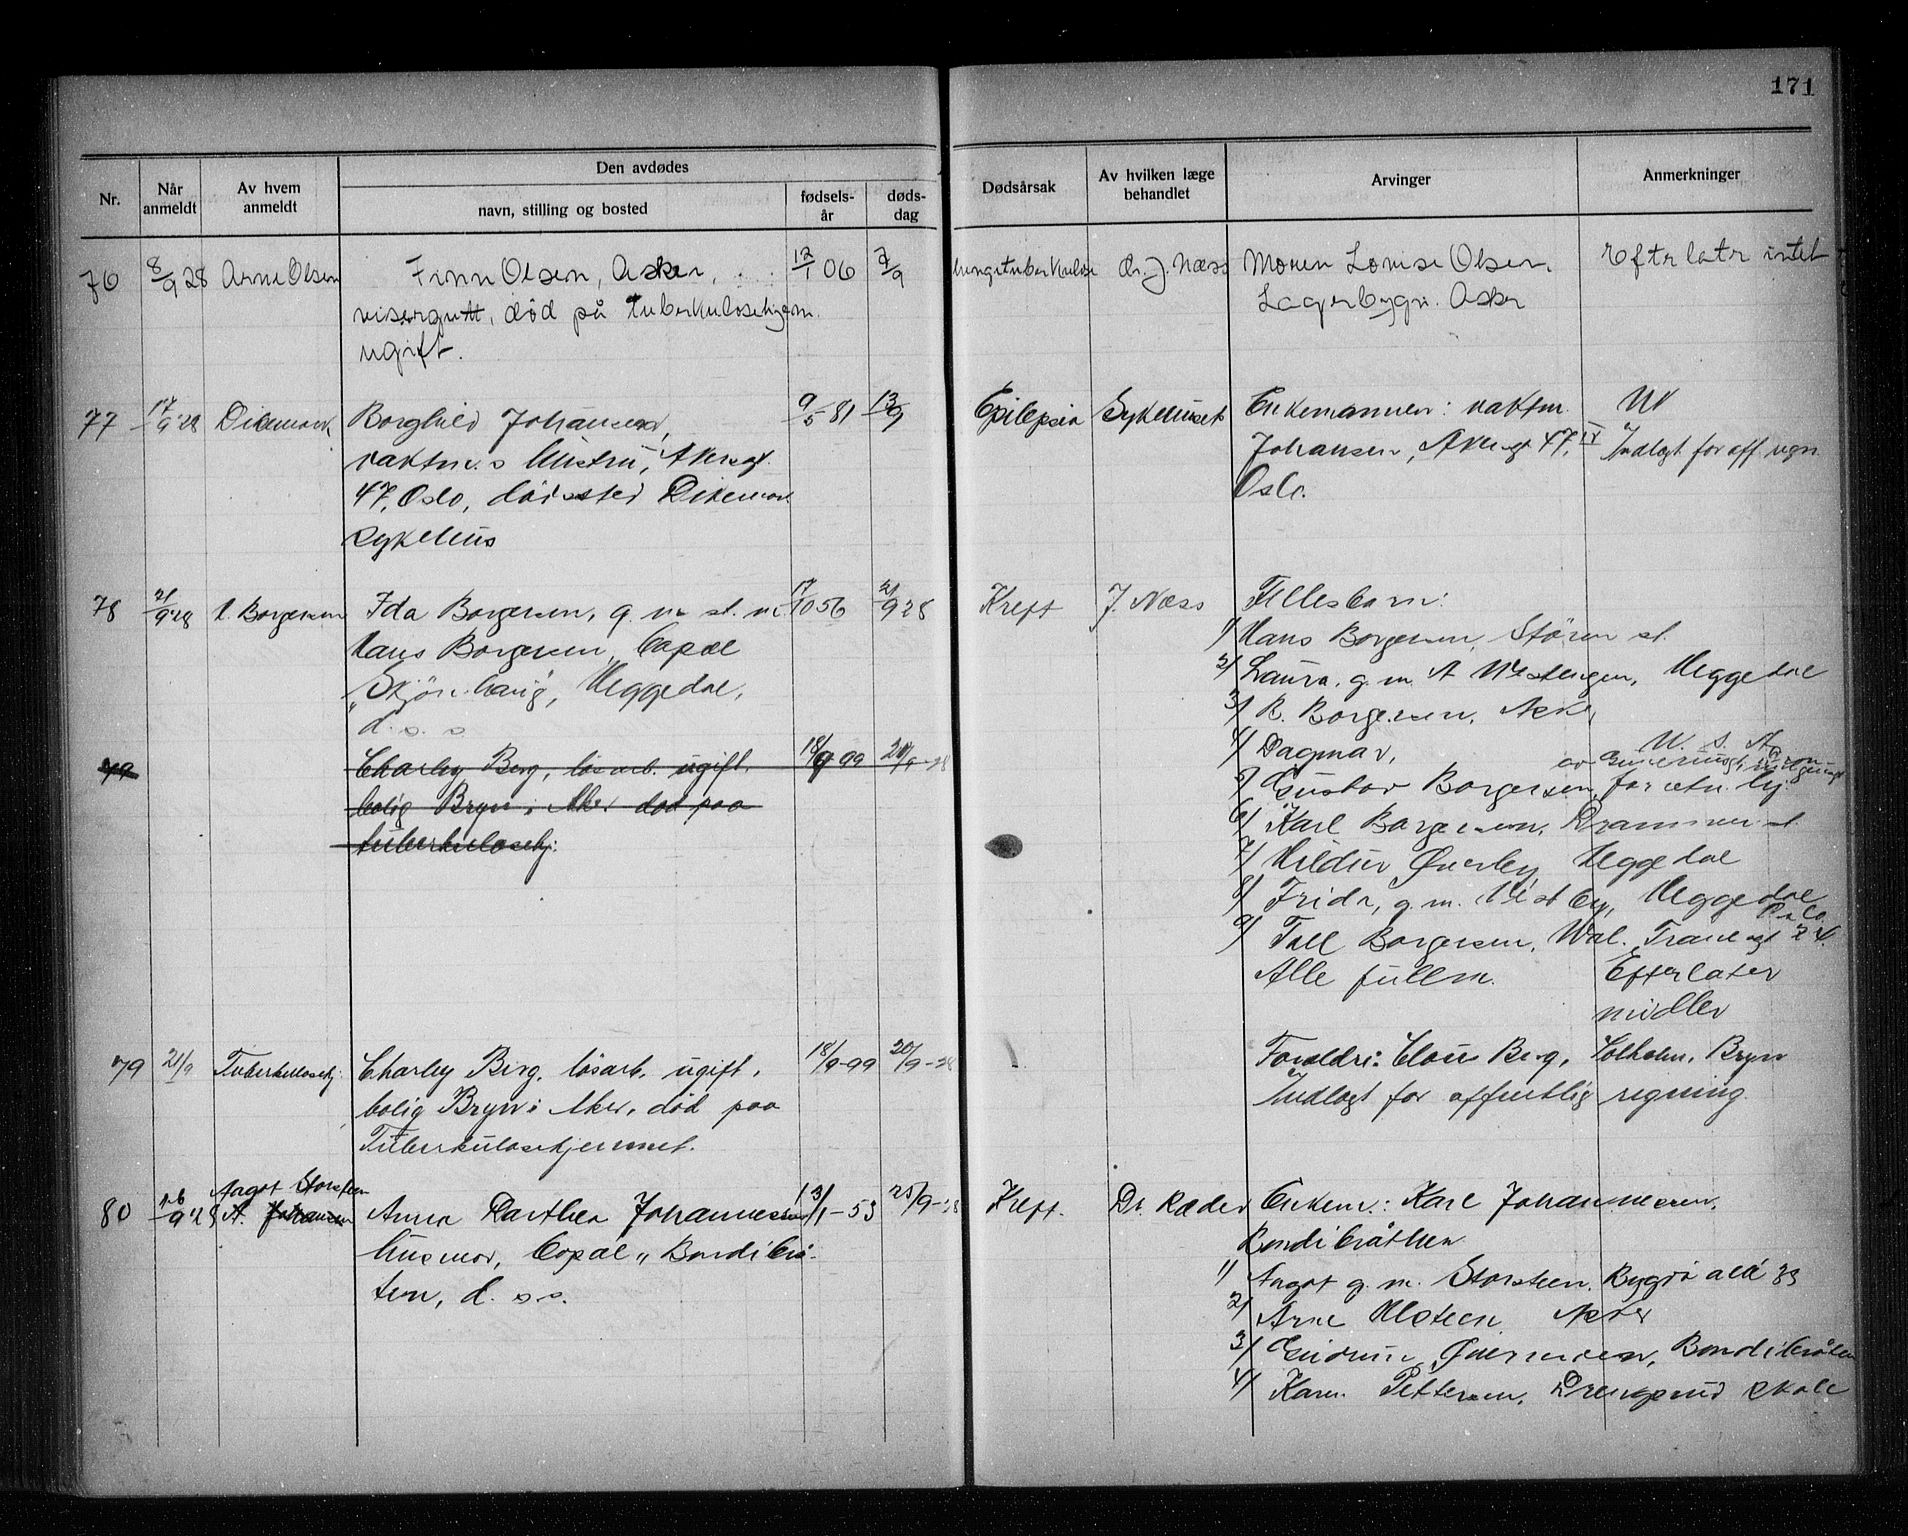 171
Nr.
Når anmeldt
Av hvem anmeldt
Den avdødes
navn, stilling og bosted
fødsels-år
døds-dag
Dødsårsak
Av hvilken læge behandlet
Arvinger
Anmerkninger
76 8/9 28 Arne Olsen Finn Olsen, Asker, 12/1 06 7/9 lungetuberkulose dr. J. Næss Moren Lovise Olsen. Efterlatr intet
visergutt, død på tuberkulosehjem. Lagerbygn. Asker
ugift.
77 17/9 28 Dikemark Borghild Johansen, 9/5 81 13/9 Epilepsia Sykehuset Enkemannen: vaktm.
vaktm.s hustru, Akersgt. Johansen, Akersgt 47, IV Indlagt for off. regn.
47, Oslo, dødssted Dikemark Oslo.
sykehus
78 21/9 28 Borgersen Ida Borgersen, g. m. st. m. 17/10 56 21/9 28 Kreft J. Næss Fellesbarn:
Hans Borgersen, Copal 1/ Hans Borgersen, Støren st.
"Skjønhaug", Heggedal, 2/ Laura, g. m. A Vestengen, Heggedal
d. s. s 3/ R. Borgersen, Asker
79 Charley Berg, løsarb. ugift, 18/9 99 20/9-28 4/ Dagmar, U. S. A.
bolig Bryn i Aker død paa 5/ Gustav Borgersen, for etn. by.
tuberkulosehj: 6/ Karl Borgersen, Drammen st.
7/ Hildur Øverby Heggedal
8/ Frida, g. m. Vestby, Heggedal
9/ Tall Borgersen, Wal. Tranesgt 24. Oslo
Alle fullm. Efterlater
midler
79 21/9 Tuberkulosehj. Charley Berg, løsarb. ugift, 18/9-99 20/9-28 Foreldre: Claus Berg, Solholm, Bryn
bolig Bryn i Aker, død paa Indlagt for offentlig regning.
Tuberkulosehjemmet.
80 26/9 28 Aagot Storsteen
A. Johansen Anna Dorthea Johannessen 13/1-53 25/9-28 Kreft. Dr. Ræder Enkem.: Karl Johannessen,
husmor, Copal "Bondibrå- Bondibråthen
ten, d. s s. 1/ Aagot g. m. Storsteen, Bygdø allé 33
2/ Arne Ulsteen Asker
3/ Gudrun Øvernesen, Bondibråten
4/ Karen Pettersen, Drengsrud skole